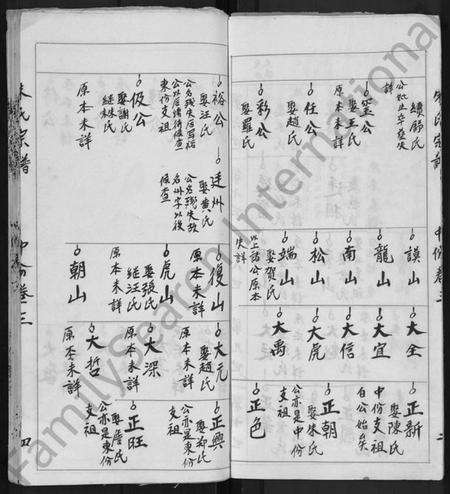 朱氏宗譜 中份卷三 二
續鄒氏
公妣生卒葬失
詳
篁公
娶王氏
原本未詳
任公
娶趙氏
彩公
娶羅氏
謨山
龍山
南山
松山
端山
娶賀氏
以上諸公原本
失詳
大全
大宜
大信
大虎
大禹
正新
娶陳氏
中份支祖
自公始矣
正朝
娶朱氏
公亦是中份
支祖
正色
裕公
娶汪氏
公以居諸待後
東份支祖
伋公
娶謝氏
繼姝氏
原本未詳
廷州
娶黄氏
公名殘失故
名州字以後
候查
復山
原本未詳
虎山
娶張氏
繼汪氏
原本未詳
朝山
大元
娶趙氏
原本未詳
大深
原本未詳
大哲
原本未詳
正興
娶鄒氏
公亦是東份
支祖
正旺
娶詹氏
公亦是東份
支祖
朱氏宗譜 中份卷三 四
FamilySearch International